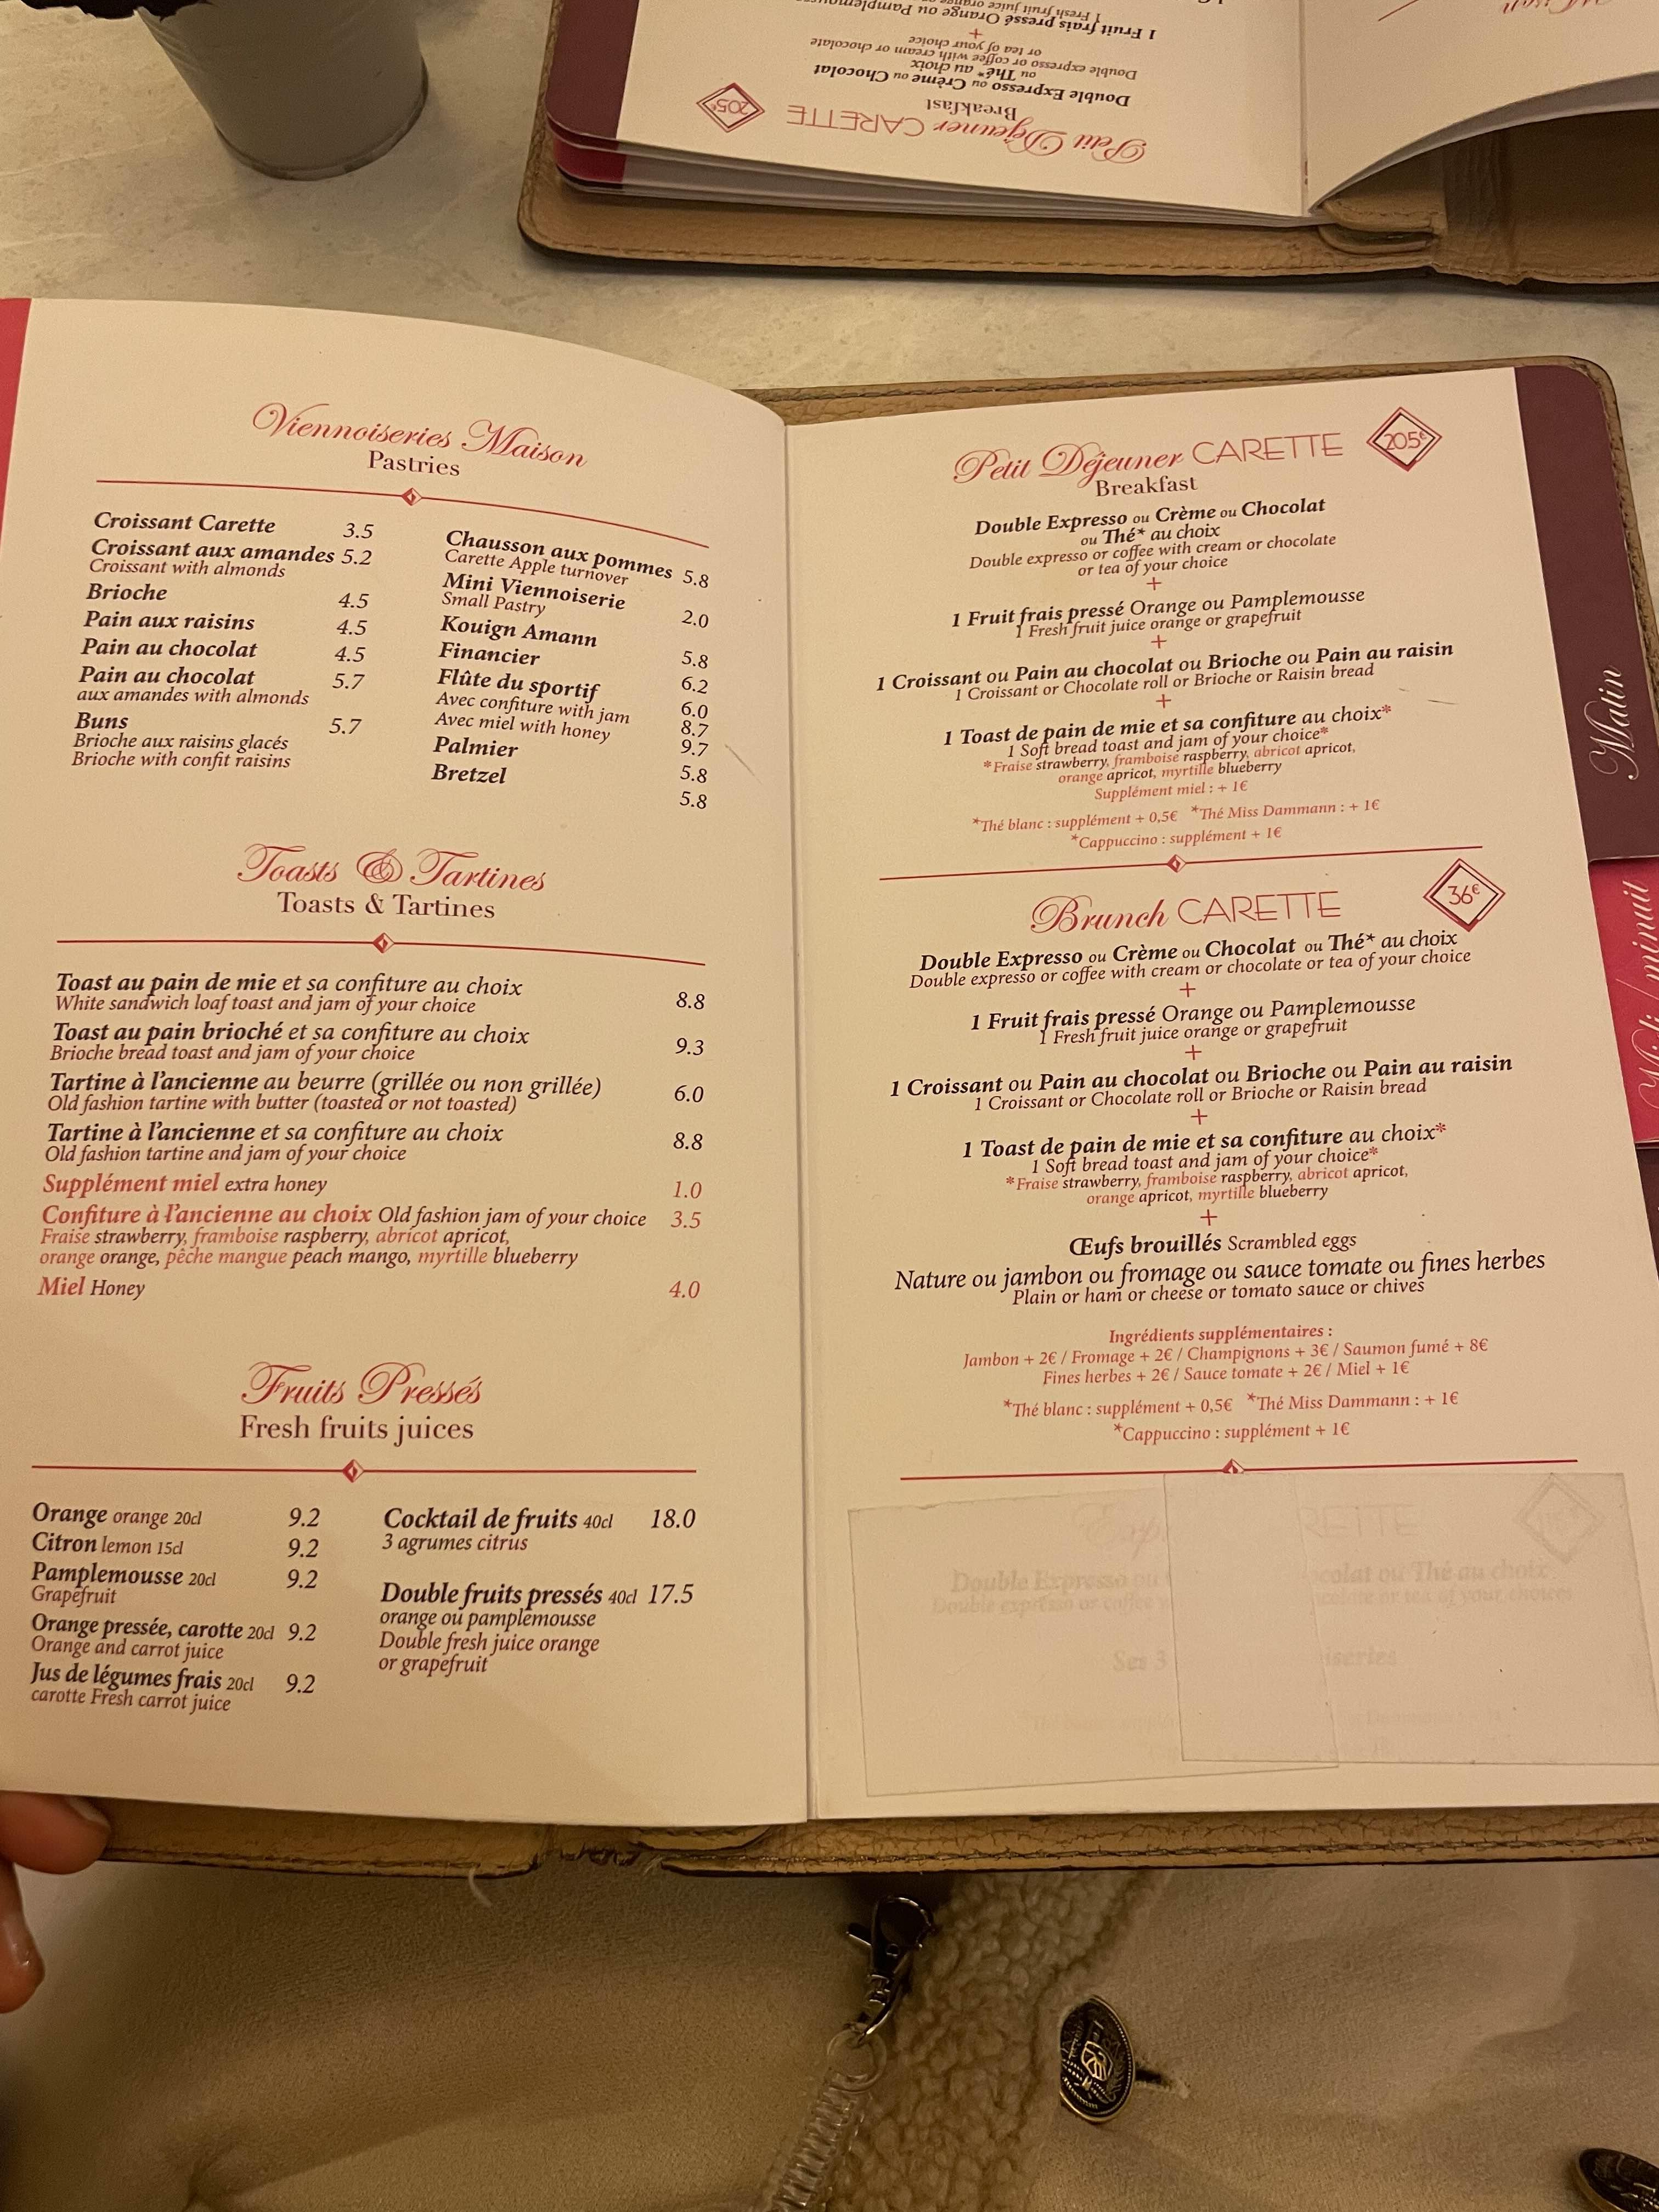 Petit Déjeuner CARETTE
205€
Breakfast
Double Expresso ou Crème ou Chocolat
ou Thé* au choix
Double expresso or coffee with cream or chocolate
or tea of your choice
+
1 Fruit frais pressé Orange ou
1 Fresh fruit juice
Viennoiseries Maison
Pastries
Croissant Carette 3.5
Croissant aux amandes 5.2
Croissant with almonds
Brioche 4.5
Pain aux raisins 4.5
Pain au chocolat 4.5
Pain au chocolat 5.7
aux amandes with almonds
Buns 5.7
Brioche aux raisins glacés
Brioche with confit raisins
Chausson aux pommes 5.8
Carette Apple turnover
Mini Viennoiserie 2.0
Small Pastry
Kouign Amann 5.8
Financier 6.2
Flûte du sportif 6.0
Avec confiture with jam 8.7
Avec miel with honey 9.7
Palmier 5.8
Bretzel 5.8
Toasts & Tartines
Toasts & Tartines
Toast au pain de mie et sa confiture au choix 8.8
White sandwich loaf toast and jam of your choice
Toast au pain brioché et sa confiture au choix 9.3
Brioche bread toast and jam of your choice
Tartine à l'ancienne au beurre (grillée ou non grillée) 6.0
Old fashion tartine with butter (toasted or not toasted)
Tartine à l'ancienne et sa confiture au choix 8.8
Old fashion tartine and jam of your choice
Supplément miel extra honey 1.0
Confiture à l'ancienne au choix Old fashion jam of your choice 3.5
Fraise strawberry, framboise raspberry, abricot apricot,
orange orange, pêche mangue peach mango, myrtille blueberry
Miel Honey 4.0
Fruits Pressés
Fresh fruits juices
Orange orange 20cl 9.2
Citron lemon 15cl 9.2
Pamplemousse 20cl 9.2
Grapefruit
Orange pressée, carotte 20cl 9.2
Orange and carrot juice
Jus de légumes frais 20cl 9.2
carotte Fresh carrot juice
Cocktail de fruits 40cl 18.0
3 agrumes citrus
Double fruits pressés 40cl 17.5
orange ou pamplemousse
Double fresh juice orange
or grapefruit
Petit Déjeuner CARETTE
205€
Breakfast
Double Expresso ou Crème ou Chocolat
ou Thé* au choix
Double expresso or coffee with cream or chocolate
or tea of your choice
+
1 Fruit frais pressé Orange ou Pamplemousse
1 Fresh fruit juice orange or grapefruit
+
1 Croissant ou Pain au chocolat ou Brioche ou Pain au raisin
1 Croissant or Chocolate roll or Brioche or Raisin bread
+
1 Toast de pain de mie et sa confiture au choix*
1 Soft bread toast and jam of your choice*
*Fraise strawberry, framboise raspberry, abricot apricot,
orange apricot, myrtille blueberry
Supplément miel : + 1€
*Thé blanc : supplément + 0,5€ *Thé Miss Dammann : + 1€
*Cappuccino : supplément + 1€
Brunch CARETTE
36€
Double Expresso ou Crème ou Chocolat ou Thé* au choix
Double expresso or coffee with cream or chocolate or tea of your choice
+
1 Fruit frais pressé Orange ou Pamplemousse
1 Fresh fruit juice orange or grapefruit
+
1 Croissant ou Pain au chocolat ou Brioche ou Pain au raisin
1 Croissant or Chocolate roll or Brioche or Raisin bread
+
1 Toast de pain de mie et sa confiture au choix*
1 Soft bread toast and jam of your choice*
*Fraise strawberry, framboise raspberry, abricot apricot,
orange apricot, myrtille blueberry
+
Œufs brouillés Scrambled eggs
Nature ou jambon ou fromage ou sauce tomate ou fines herbes
Plain or ham or cheese or tomato sauce or chives
Ingrédients supplémentaires :
Jambon + 2€ / Fromage + 2€ / Champignons + 3€ / Saumon fumé + 8€
Fines herbes + 2€ / Sauce tomate + 2€ / Miel + 1€
*Thé blanc : supplément + 0,5€ *Thé Miss Dammann : + 1€
*Cappuccino : supplément + 1€
Double Expresso ou ou Thé au choix
Double expresso or coffee or tea of your choices
Ses 3
Matin
Midi / minuit